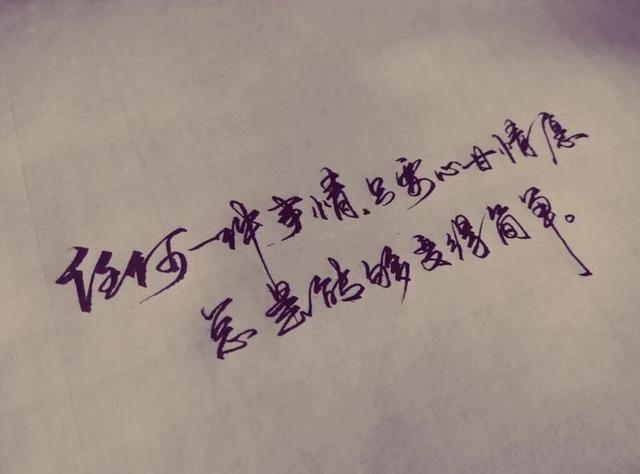 任何一种事情,只要心甘情愿
总是能够变得简单。